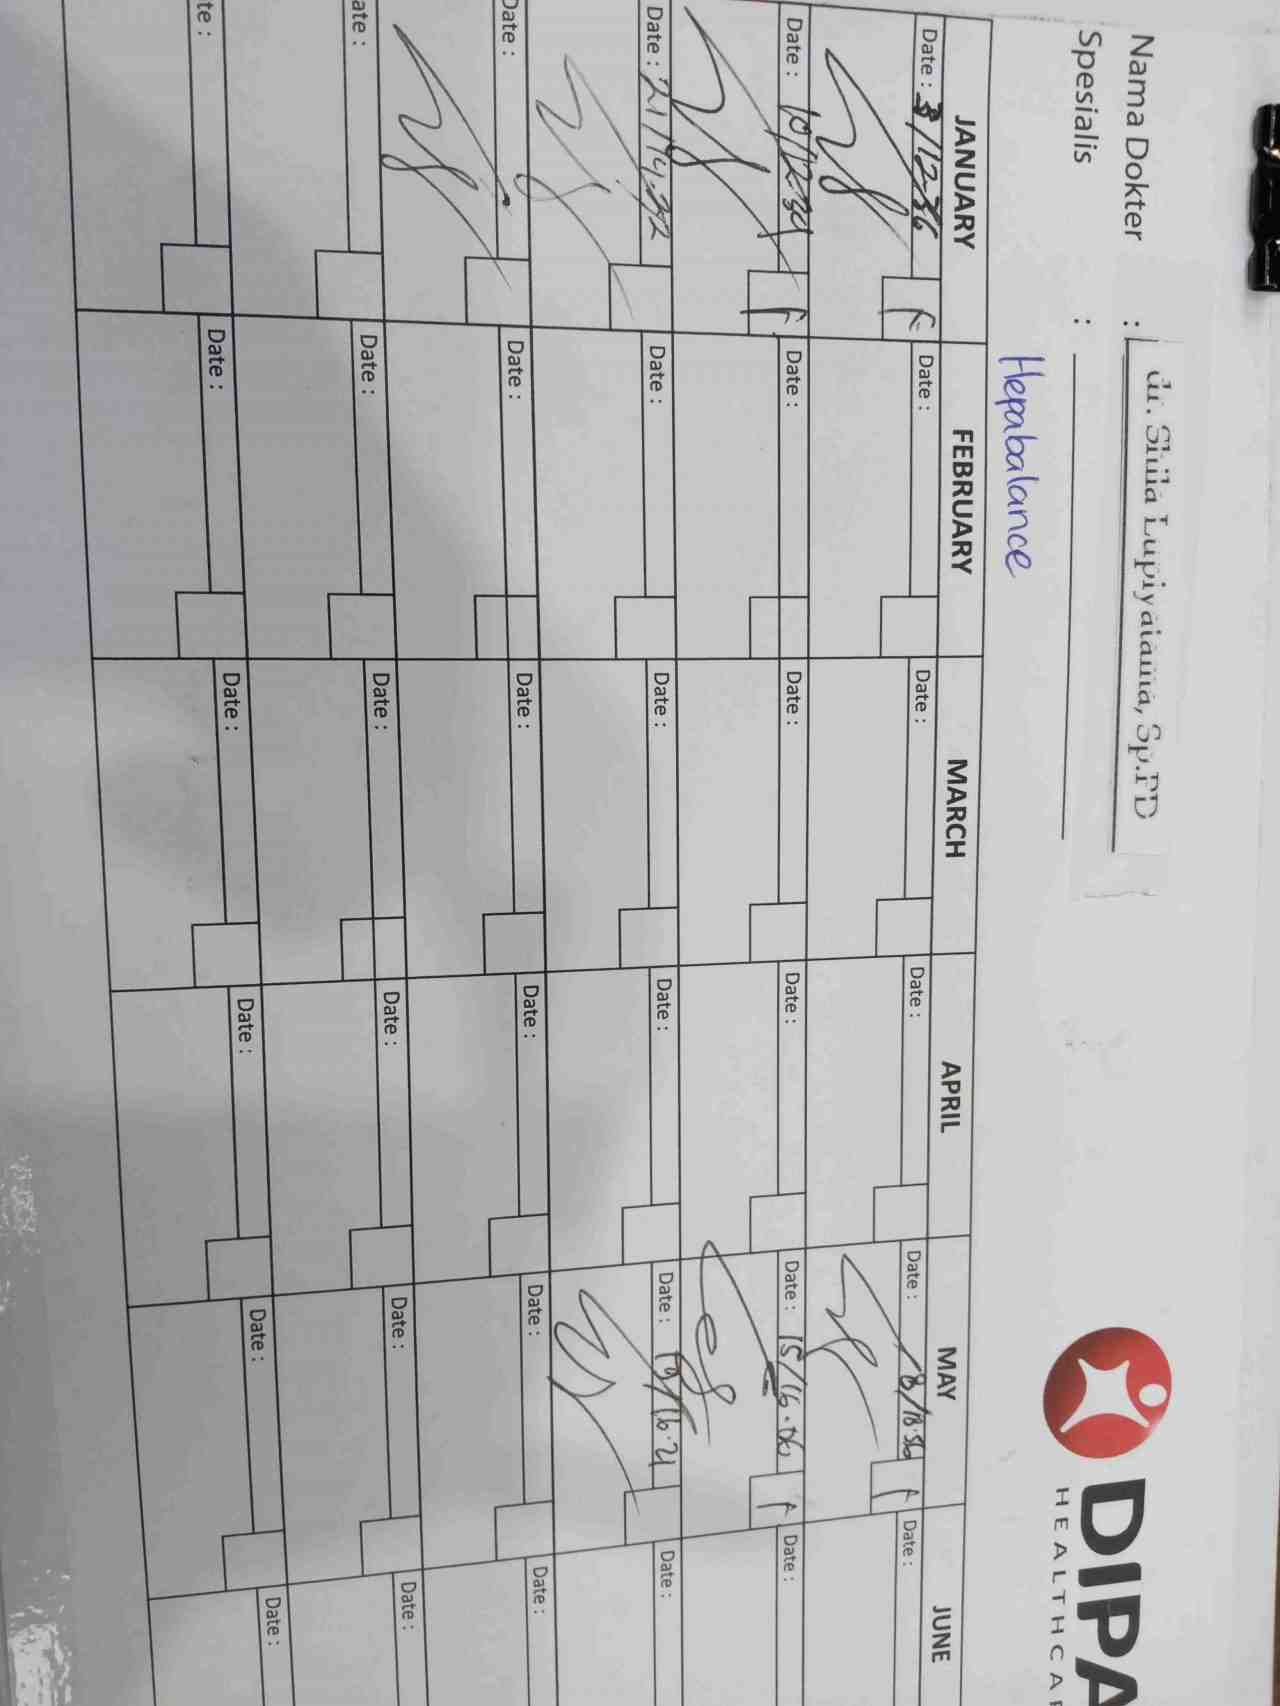 Nama Dokter : dr. Shila Lupiyatama, Sp.PD
Spesialis :
DIPA
HEALTHCA
Hepabalance
JANUARY FEBRUARY MARCH APRIL MAY JUNE
Date : 8/12-36 F Date : Date : Date : Date : 8/18.56 F Date :
Date : 10/12.34 F Date : Date : Date : Date : 15/16.06 F Date :
Date : 21/14.32 Date : Date : Date : Date : 19/16.21 Date :
Date : Date : Date : Date : Date : Date :
ate : Date : Date : Date : Date : Date :
te : Date : Date : Date : Date : Date :